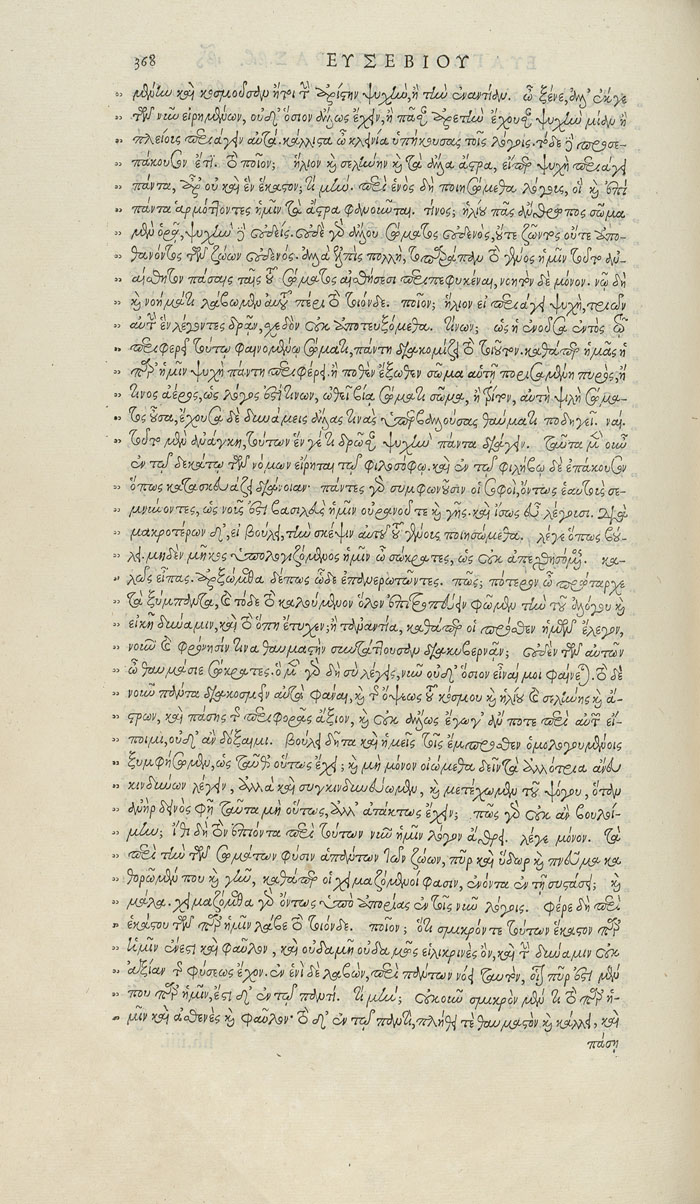 368 ΕΥΣΕΒΙΟΥ
μένην καὶ κοσμοῦσαν ἤτοι τὴν ἀρίστην ψυχὴν, ἢ τὴν ἐναντίαν. ὦ ξένε, ἀλλ' ἔκ γε
τῶν νῦν εἰρημένων, οὐδ' ὅσιον ἄλλως ἔχειν, ἢ πᾶσαν ἀρετὴν ἔχουσαν ψυχὴν μίαν ἢ
πλείους περιάγειν αὐτά. κάλλιστα ὦ κλεινία ὑπήκουσας τοῖς λόγοις. τόδε δὲ προσε-
πάκουσον ἔτι. τὸ ποῖον; ἥλιον καὶ σελήνην καὶ τὰ ἄλλα ἄστρα, εἴπερ ψυχὴ περιάγει
πάντα, ἆρ' οὐ καὶ ἓν ἕκαστον; τί μήν. περὶ ἑνὸς δὴ ποιησώμεθα λόγους, οἳ καὶ ἐπὶ
πάντα ἁρμόττοντες ἡμῖν τὰ ἄστρα φανοῦνται. τίνος; ἡλίου πᾶς ἄνθρωπος σῶμα
μὲν ὁρᾷ, ψυχὴν δὲ οὐδείς. οὐδὲ γὰρ ἄλλου σώματος οὐδενὸς, οὔτε ζῶντος οὔτε ἀπο-
θανόντος τῶν ζώων οὐδενός. ἀλλὰ ἐλπὶς πολλὴ, τοπαράπαν τὸ γένος ἡμῖν τοῦτο ἀν-
αίσθητον πάσαις ταῖς τοῦ σώματος αἰσθήσεσι περιπεφυκέναι, νοητὸν δὲ μόνον. νῷ δὴ
καὶ νοήματι λάβωμεν αὐτοῦ πέρι τὸ τοιόνδε. ποῖον; ἥλιον εἰ περιάγει ψυχὴ, τριῶν
αὐτὴν ἓν λέγοντες δρᾶν, σχεδὸν οὐκ ἀποτευξόμεθα. τίνων; ὡς ἢ ἐνοῦσα ἐντὸς τῷ
περιφερεῖ τούτῳ φαινομένῳ σώματι, πάντη διακομίζει τὸ τοιοῦτον. καθάπερ ἡμᾶς ἡ
παρ' ἡμῖν ψυχὴ πάντη περιφέρει. ἤ ποθεν ἔξωθεν σῶμα αὐτὴ πορισαμένη πυρὸς, ἤ
τινος ἀέρος, ὡς λόγος ἐστί τινων, ὠθεῖ βίᾳ σώματι σῶμα, ἢ τρίτον, αὐτὴ ψιλὴ σώμα-
τος οὖσα, ἔχουσα δὲ δυνάμεις ἄλλας τινὰς ὑπερβαλλούσας θαύματι ποδηγεῖ. ναί.
τοῦτο μὲν ἀνάγκη, τούτων ἕν γέ τι δρῶσαν ψυχὴν πάντα διάγειν. ταῦτα μὲν οὖν
ἐν τῷ δεκάτῳ τῶν νόμων εἴρηται τῷ φιλοσόφῳ. καὶ ἐν τῷ φιλήβῳ δὲ ἐπάκουσον
ὅπως κατασκευάζει διάνοιαν· πάντες γὰρ συμφωνοῦσιν οἱ σοφοὶ, ὄντως ἑαυτοὺς σε-
μνύνοντες, ὡς νοῦς ἐστὶ βασιλεὺς ἡμῖν οὐρανοῦ τε καὶ γῆς. καὶ ἴσως εὖ λέγουσι. διὰ
μακροτέρων δ', εἰ βούλει, τὴν σκέψιν αὐτοῦ τοῦ γένους ποιησώμεθα. λέγε ὅπως βού-
λει. μηδὲν μῆκος ὑπολογιζόμενος ἡμῖν ὦ σώκρατες, ὡς οὐκ ἀπεχθησόμενος. κα-
λῶς εἶπας. ἀρξώμεθα δέ πως ὧδε ἐπανερωτῶντες. πῶς; πότερον ὦ πρώταρχε
τὰ ξύμπαντα, καὶ τόδε τὸ καλούμενον ὅλον ἐπιτροπεύειν φῶμεν τὴν τοῦ ἀλόγου καὶ
εἰκῆ δύναμιν, καὶ τὸ ὅπη ἔτυχεν; ἢ τἀναντία, καθάπερ οἱ πρόσθεν ἡμῶν ἔλεγον,
νοῦν καὶ φρόνησίν τινα θαυμαστὴν συντάττουσαν διακυβερνᾶν; οὐδὲν τῶν αὐτῶν
ὦ θαυμάσιε σώκρατες. ὃ μὲν γὰρ δὴ σὺ λέγεις, νῦν οὐδ' ὅσιον εἶναί μοι φαίνεται. τὸ δὲ
νοῦν πάντα διακοσμεῖν αὐτὰ φάναι, καὶ τῆς ὄψεως τοῦ κόσμου καὶ ἡλίου καὶ σελήνης καὶ ἀ-
στρων, καὶ πάσης τῆς περιφορᾶς ἄξιον, καὶ οὐκ ἄλλως ἔγωγ' ἄν ποτε περὶ αὐτῶν εἴ-
ποιμι, οὐδ' ἂν δόξαιμι. βούλει δῆτα καὶ ἡμεῖς τοῖς ἔμπροσθεν ὁμολογουμένοις
ξυμφήσωμεν, ὡς ταῦθ' οὕτως ἔχει; καὶ μὴ μόνον οἰώμεθα δεῖν τὰ ἀλλότρια ἄνευ
κινδύνων λέγειν, ἀλλὰ καὶ συγκινδυνεύωμεν, καὶ μετέχωμεν τοῦ ψόγου, ὅταν
ἀνὴρ δεινὸς φῇ ταῦτα μὴ οὕτως, ἀλλ' ἀτάκτως ἔχειν; πῶς γὰρ οὐκ ἂν βουλοί-
μην; ἴθι δὴ τὸν ἐπιόντα περὶ τούτων νῦν ἡμῖν λόγον ἄθρει. λέγε μόνον. τὰ
περὶ τὴν τῶν σωμάτων φύσιν ἁπάντων τῶν ζώων, πῦρ καὶ ὕδωρ καὶ πνεῦμα κα
θορῶμέν που καὶ γῆν, καθάπερ οἱ χειμαζόμενοί φασιν, ἐνόντα ἐν τῇ συστάσει; καὶ
μάλα. χειμαζόμεθα γὰρ ὄντως ὑπὸ ἀπορίας ἐν τοῖς νῦν λόγοις. φέρε δὴ περὶ
ἑκάστου τῶν παρ' ἡμῖν λάβε τὸ τοιόνδε. ποῖον; ὅτι σμικρόν τε τούτων ἕκαστον παρ'
ἡμῖν ἔνεστι καὶ φαῦλον, καὶ οὐδαμῆ οὐδαμῶς εἰλικρινὲς ὂν, καὶ τὴν δύναμιν οὐκ
ἀξίαν τῆς φύσεως ἔχον. ἐν ἑνὶ δὲ λαβὼν, περὶ πάντων νόει ταυτὸν, οἷον πῦρ ἐστὶ μέν
που παρ' ἡμῖν, ἔστι δ' ἐν τῷ παντί. τί μήν; οὐκοῦν σμικρὸν μέν τι τὸ παρ' ἡ-
μῖν καὶ ἀσθενὲς καὶ φαῦλον· τὸ δ' ἐν τῷ παντὶ, πλήθει τε θαυμαστὸν καὶ κάλλει, καὶ
πάσῃ